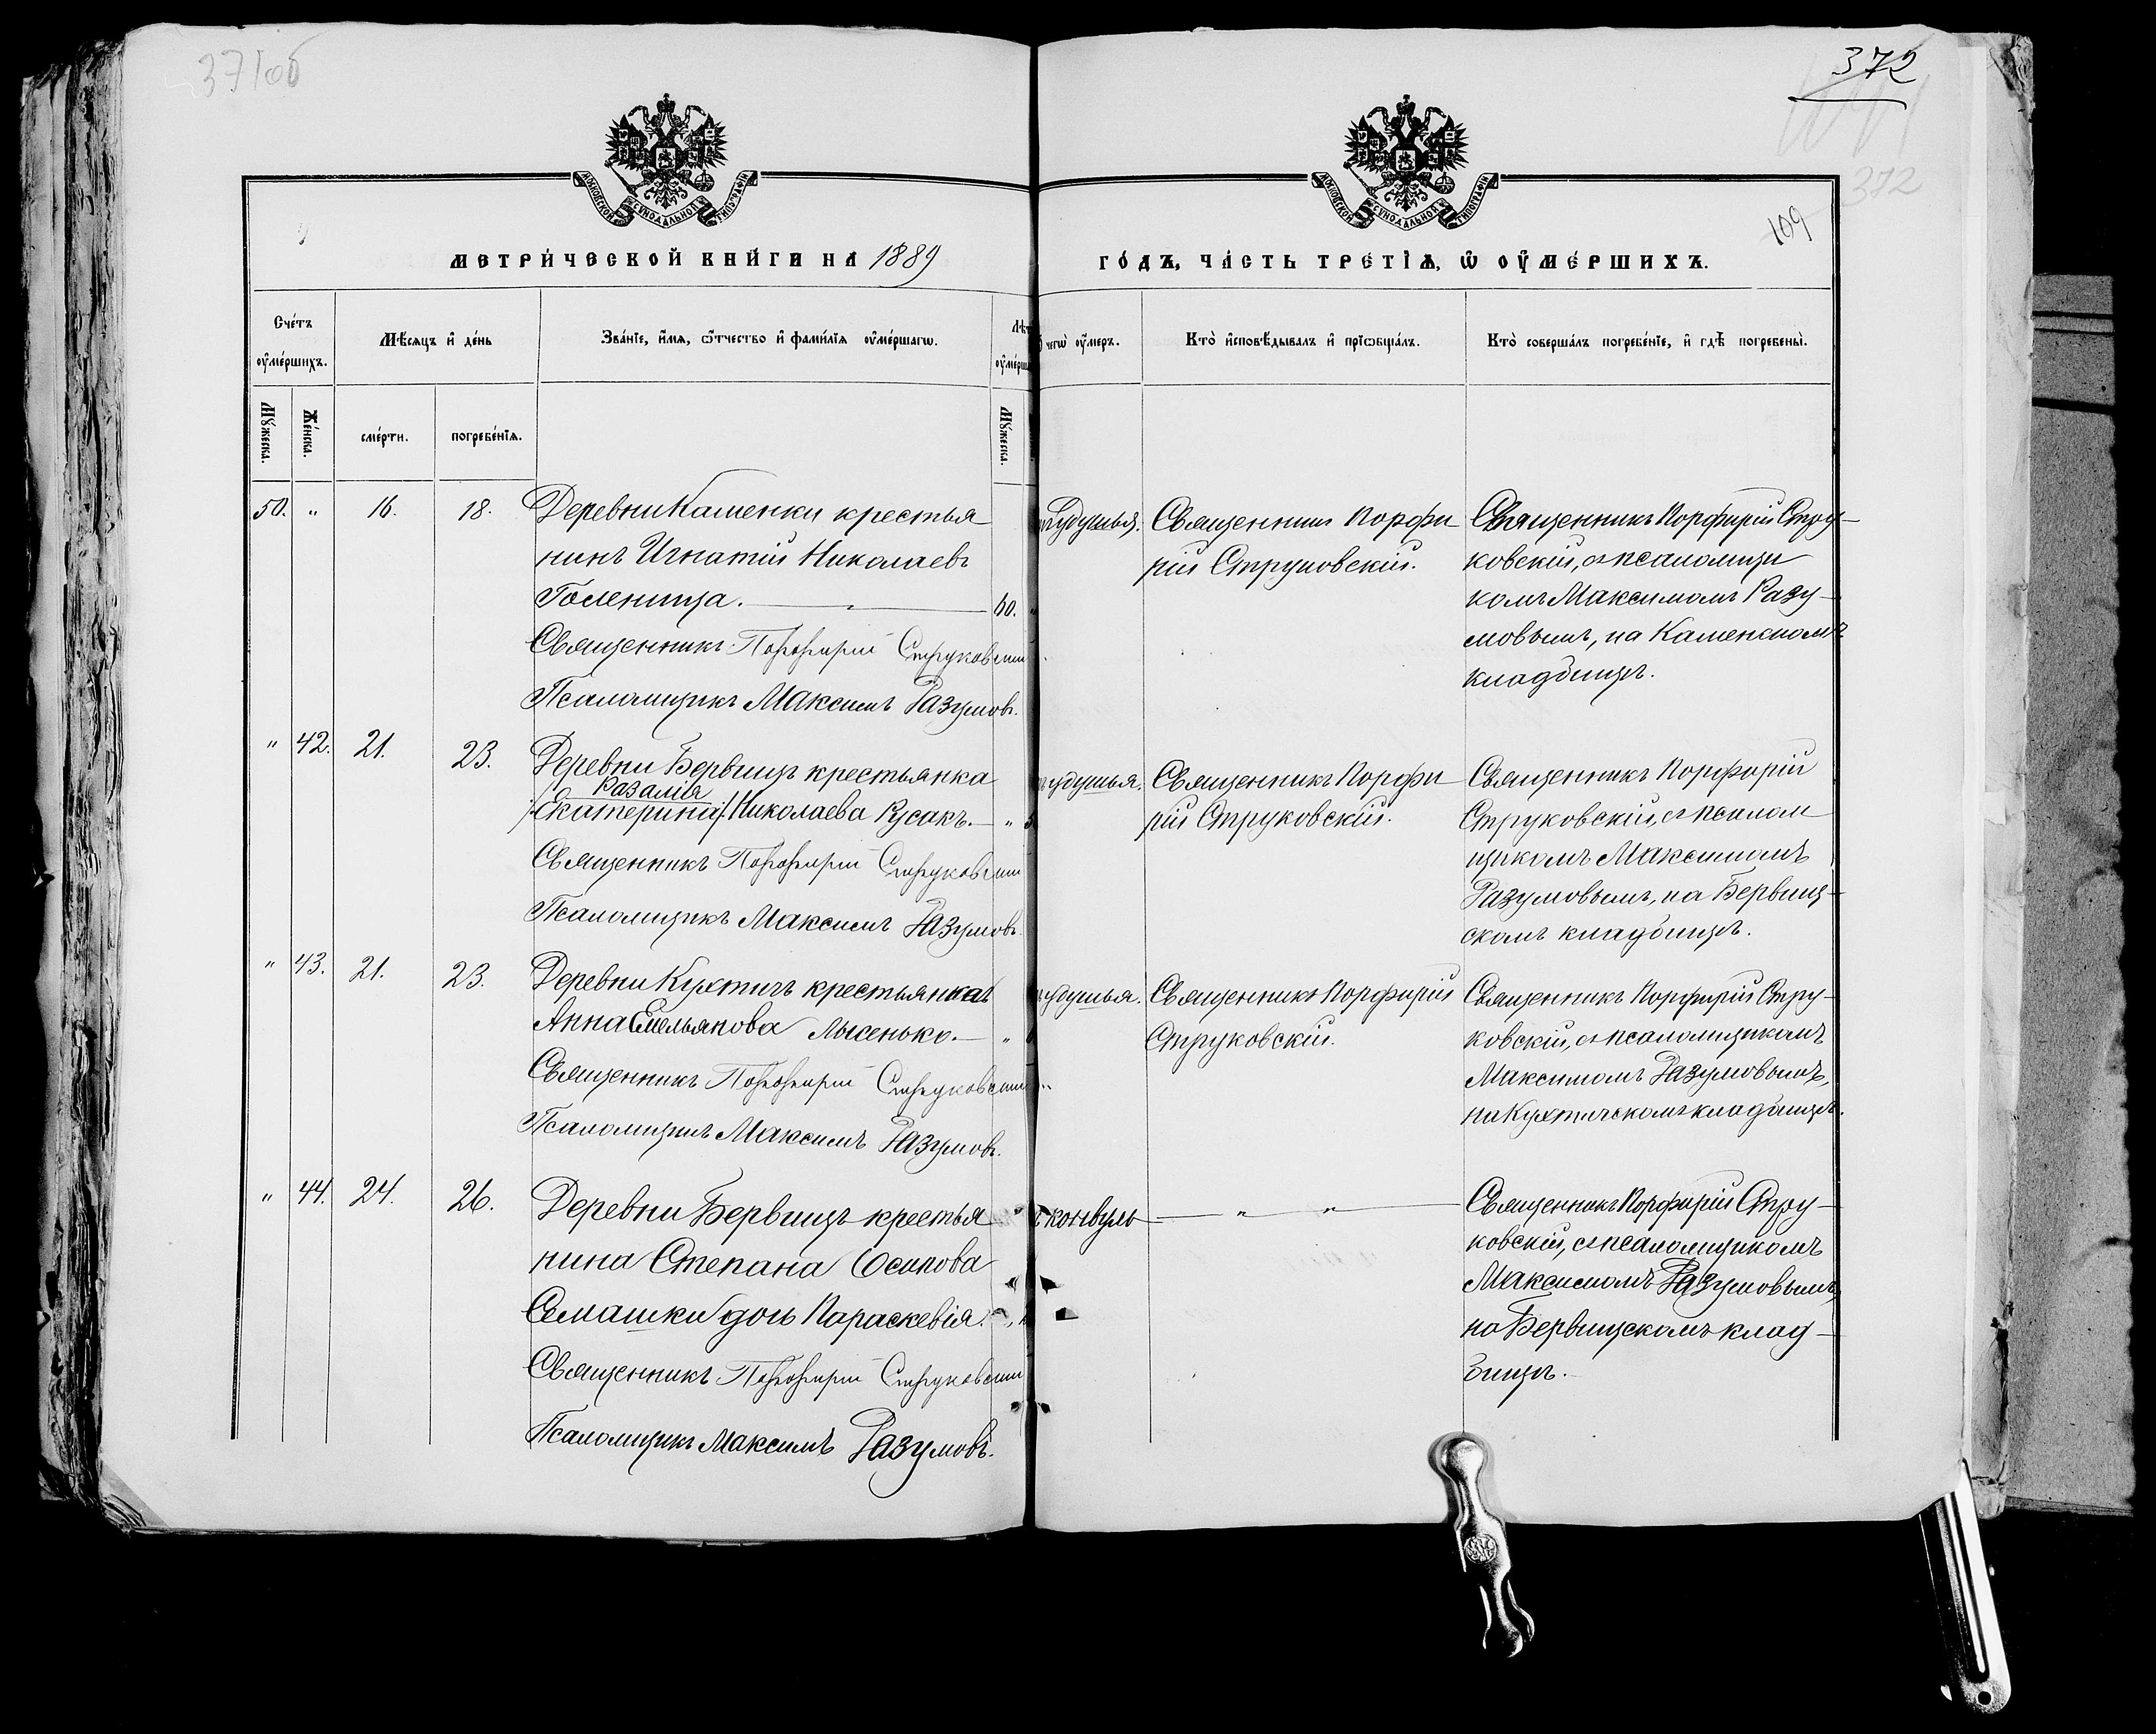 371об
372
372
109
МОСКОВСКОЙ СѴНОДАЛЬНОЙ ТИПОГРАФІИ
МОСКОВСКОЙ СѴНОДАЛЬНОЙ ТИПОГРАФІИ
МЕТРИ́ЧЕСКОЙ КНИ́ГИ НА 1889
ГО́ДЪ, ЧА́СТЬ ТРЕ́ТІѦ, Ѽ ОУ҆МЕ́РШИХЪ.
Сче́тъ оу҆ме́ршихъ.
Мѣ́сѧцъ и҆ де́нь
Зва́нїе, и҆́мѧ, ѻ҆́тчество и҆ фами́лїѧ оу҆ме́ршагѡ.
Лѣт
оу҆ме́рш
чегѡ̀ оу҆́меръ.
Кто̀ и҆сповѣ́дывалъ и҆ прїѡбща́лъ.
Кто̀ соверша́лъ погребе́нїе, и҆ гдѣ̀ погребены̀.
Мꙋ́жеска.
Же́нска.
сме́рти.
погребе́нїѧ.
Мꙋ́жеска.
50. " 16. 18.
Деревни Каменки крестья
нинъ Игнатій Николаевъ
Голеница. — " — 60.
Священникъ Порфирій Струковскій
Псаломщикъ Максимъ Разумовъ.
удушья.
Священникъ Порфи
рій Струковскій.
Священникъ Порфирій Стру-
ковскій, съ псаломщи
комъ Максимомъ Разу-
мовымъ, на Каменскомъ
кладбищѣ.
" 42. 21. 23.
Деревни Бервищъ крестьянка
Разалія
/Екатерина/ Николаева Русакъ. — "
Священникъ Порфирій Струковскій
Псаломщикъ Максимъ Разумовъ.
удушья.
Священникъ Порфи
рій Струковскій.
Священникъ Порфорій
Струковскій, съ псалом
щикомъ Максимомъ
Разумовымъ, на Бервищ-
скомъ кладбищѣ.
" 43. 21. 23.
Деревни Кухтичъ крестьянка
Анна Емельянова Лысенько. — "
Священникъ Порфирій Струковскій
Псаломщикъ Максимъ Разумовъ.
удушья.
Священникъ Порфирій
Струковскій.
Священникъ Порфирій Стру-
ковскій, съ псаломщикомъ
Максимомъ Разумовымъ,
на Кухтичскомъ кладбищѣ.
" 44. 24. 26.
Деревни Бервищъ крестья
нина Степана Осипова
Семашки дочь Параскевія.
Священникъ Порфирій Струковскій
Псаломщикъ Максимъ Разумовъ.
конвуль — " " —
Священникъ Порфирій Стру-
ковскій, съ псаломщикомъ
Максимомъ Разумовымъ,
на Бервищскомъ клад-
бищѣ.